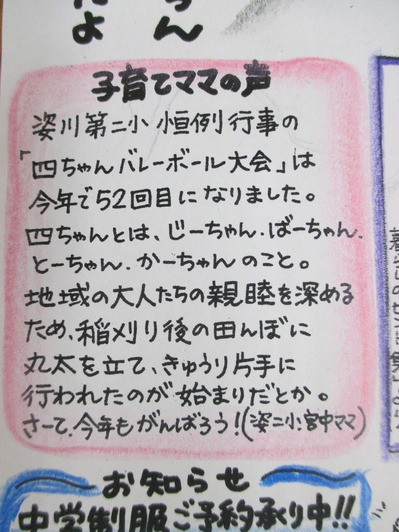 ちゃん
だよ
子育てママの声
姿川第二小恒例行事の
「四ちゃんバレーボール大会」は
今年で52回目になりました。
四ちゃんとは、じーちゃん.ばーちゃん.
とーちゃん.かーちゃんのこと。
地域の大人たちの親睦を深める
ため、稲刈り後の田んぼに
丸太を立て、きゅうり片手に
行われたのが始まりだとか。
さーて、今年もがんばろう!(姿二小宮中ママ)
お知らせ
中学制服ご予約承り中!!